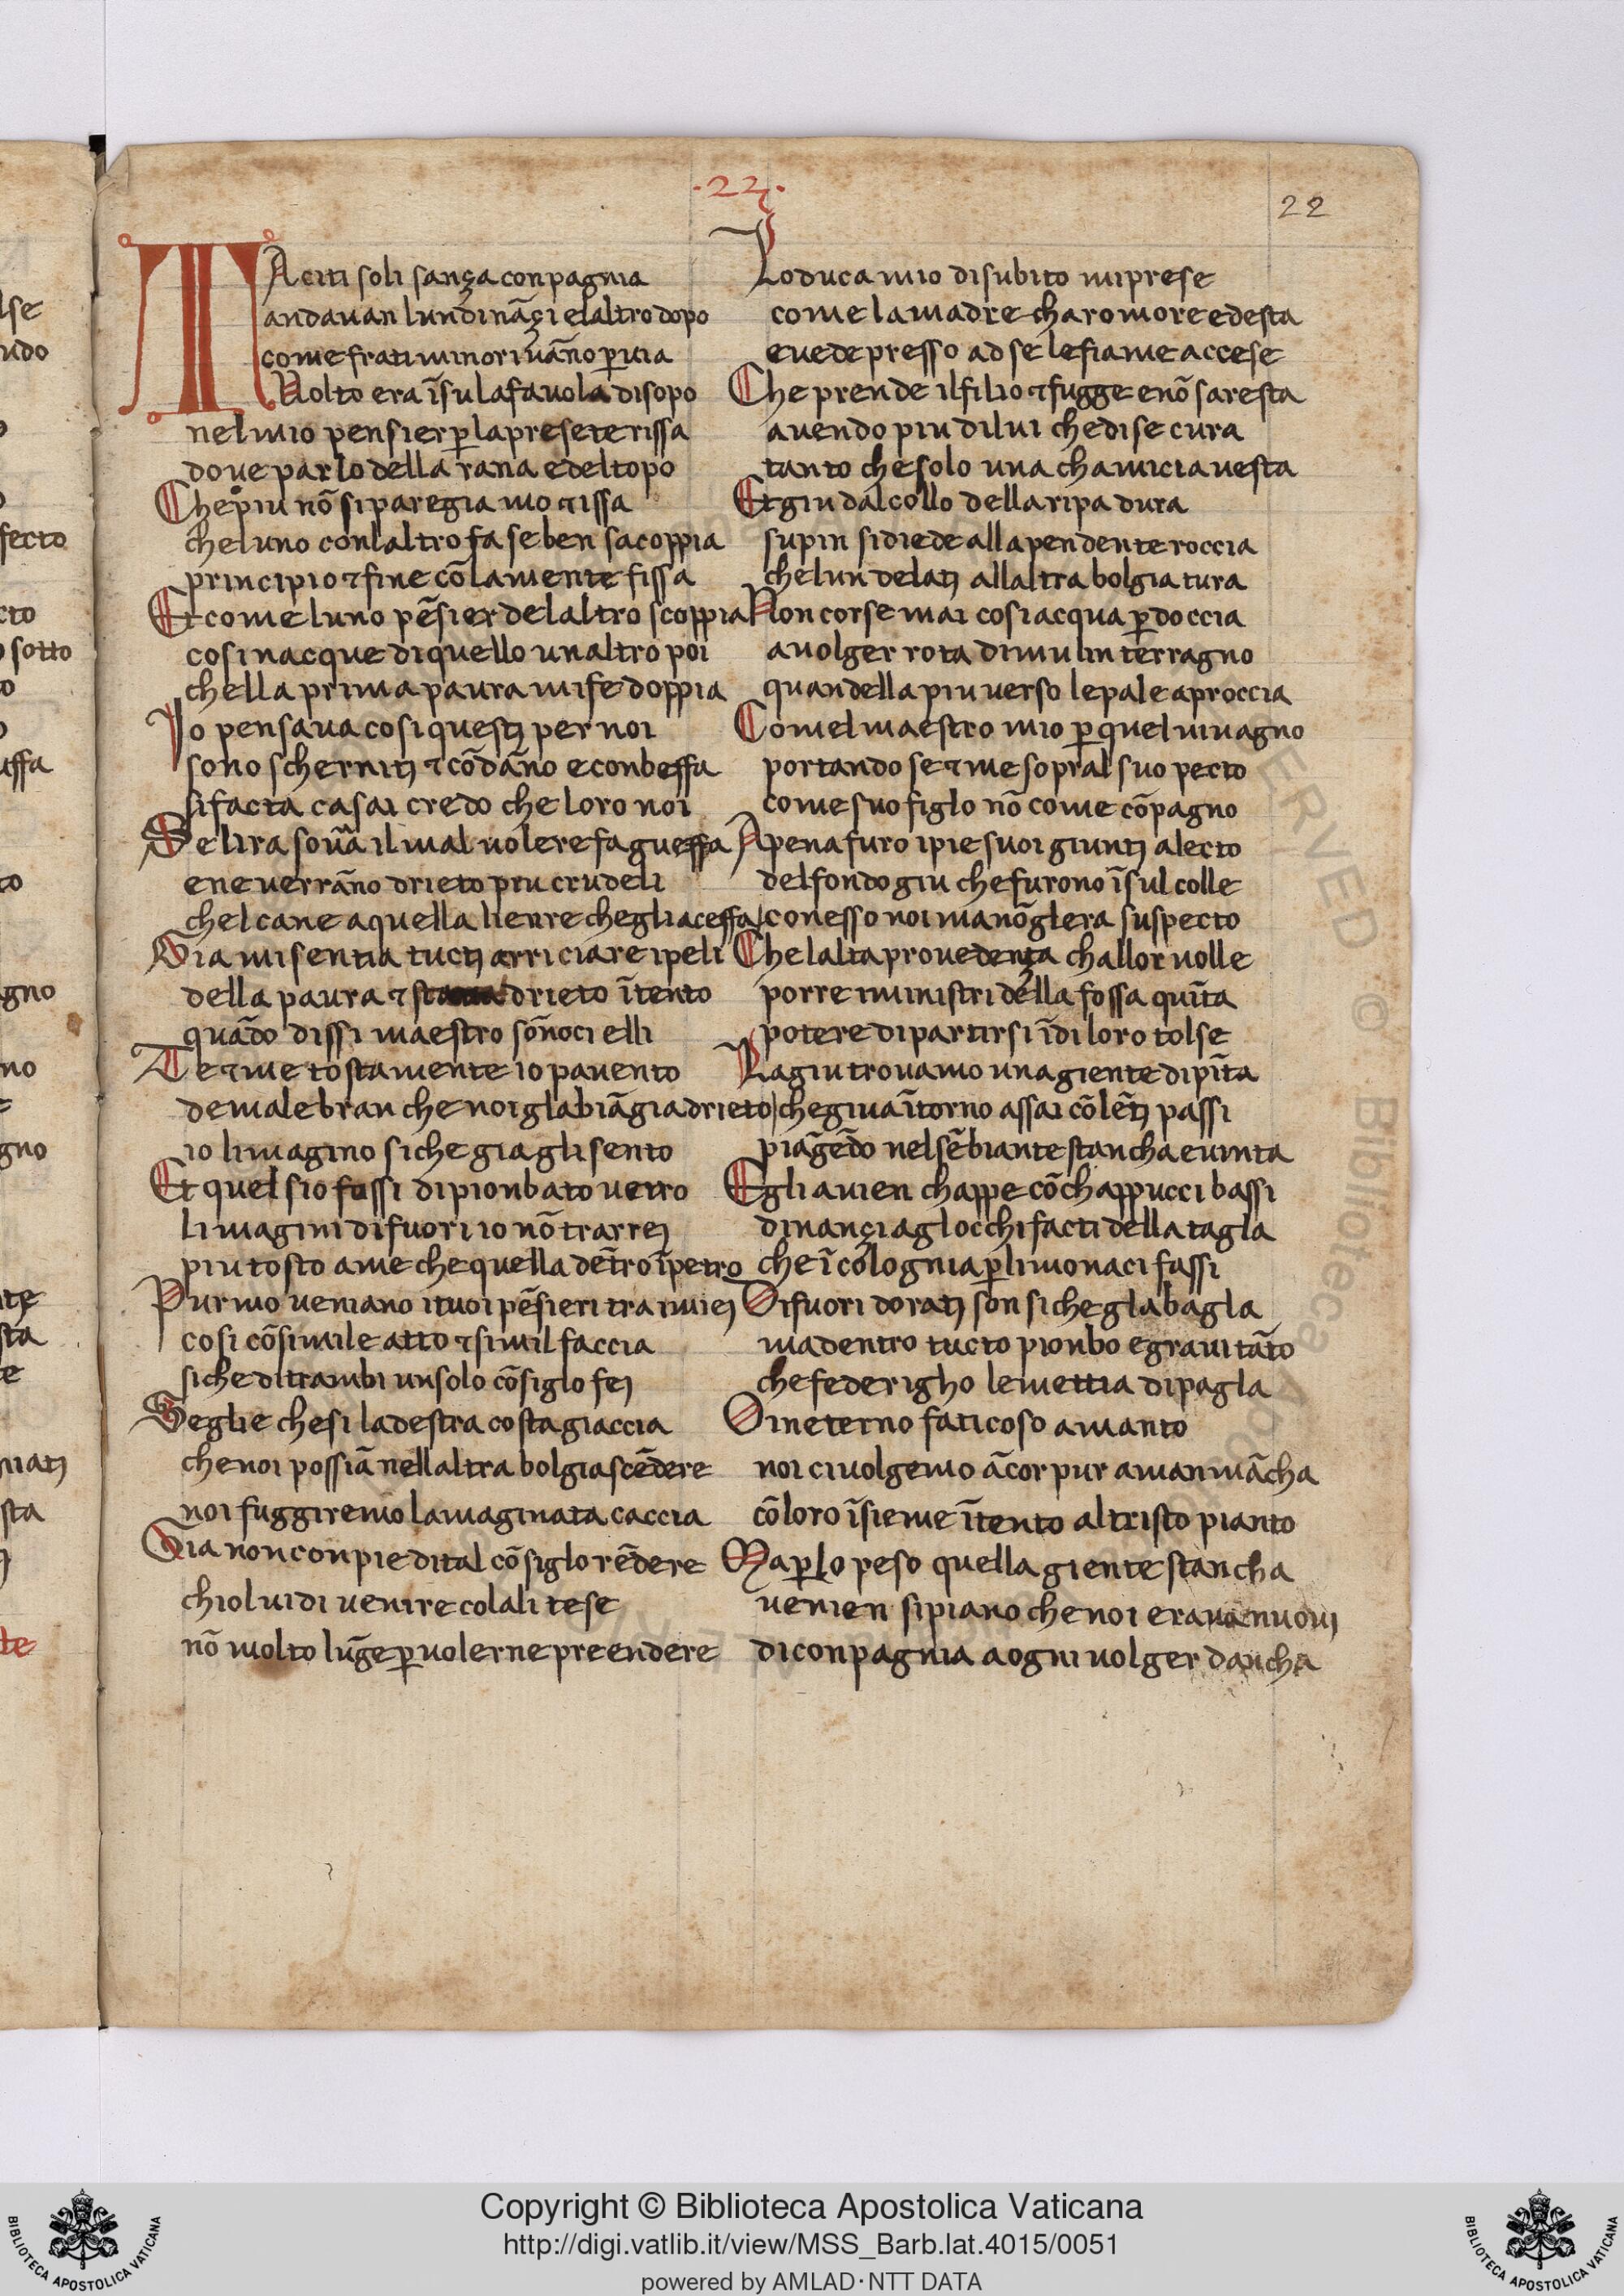 ·23·
22
TAciti soli sança conpagnia
andauan lun dināçi elaltro dopo
come frati minori uāno ꝑ uia
Uolto era īsu lafauola disopo
nel mio pensier ꝑ lapresete rissa
doue parlo della rana edeltopo
Che piu nō si paregia mo ⁊ issa
che luno conlaltro fa se ben sacoppia
principio ⁊ fine cō lamente fissa
Et come luno pēsier delaltro scoppia
cosi nacque di quello unaltro poi
chella prima paura mife doppia
Io pensaua cosi questi per noi
sono scherniti ⁊ cō dāno econbeffa
sifacta casai credo che loro noi
Se lira souā il mal uolere fa gueffa
ene uerrāno drieto piu crudeli
chel cane aquella lieure chegliaceffa
Gia mi sentia tucti arriciare ipeli
della paura ⁊ drieto ītento
quādo dissi maestro sōnoci elli
Te ⁊ me tostamente io pauento
demalebranche noi glabiā gia drieto
io limagino si che gia gli sento
Et quel sio fussi dipionbato uetro
limagini difuori io nō trarrei
piu tosto ame che quella dētro īpetro
Pur mo ueniano ituoi pēsieri tra miei
cosi cō simile atto ⁊ simil faccia
siche ditrambi unsolo cōsiglo fei
Seglie chesi ladestra costa giaccia
che noi possiā nellaltra bolgia scēdere
noi fuggiremo lamaginata caccia
Gia non conpie dital cōsiglo rēdere
chio luidi uenire colali tese
nō molto lūge ꝑ uolerne preendere
Lo duca mio disubito miprese
come lamadre charomore edesta
euede presso adse lefiame accese
Che prende ilfilio ⁊ fugge enō saresta
auendo piu dilui chedise cura
tanto che solo una chamicia uesta
Et giu dal collo della ripa dura
supin sidiede alla pendente roccia
chelun delati allaltra bolgia tura
Non corse mai cosi acqua ꝑ doccia
auolger rota dimulin terragno
quandella piu uerso lepale aproccia
Comel maestro mio ꝑ quel uiuagno
portando se ⁊ me sopral suo pecto
come suo figlo nō come cōpagno
Apena furo ipie suoi giunti alecto
delfondo giu che furono īsul colle
conesso noi ma nō glera suspecto
Che lalta prouedença challor uolle
porre ministri della fossa quīta
potere dipartirsi īdi loro tolse
La giu trouamo una giente dipīta
che giua ītorno assai cō lēti passi
piāgēdo nel sēbiante stancha euinta
Egli auien chappe cō chappucci bassi
dinançi agl occhi facti della tagla
che ī cologna ꝑ limonaci fassi
Difuori dorati son si che gl abagla
ma dentro tucto pionbo egraui tāto
che federigho lemettia dipagla
O in eterno faticoso amanto
noi ci uolgemo ācor pur aman mācha
cō loro īsieme ītento al tristo pianto
Ma ꝑ lo peso quella giente stancha
uenien si piano che noi erauā nuoui
di conpagnia aogni uolger dancha
Copyright © Biblioteca Apostolica Vaticana
http://digi.vatlib.it/view/MSS_Barb.lat.4015/0051
powered by AMLAD·NTT DATA
BIBLIOTECA APOSTOLICA VATICANA
BIBLIOTECA APOSTOLICA VATICANA